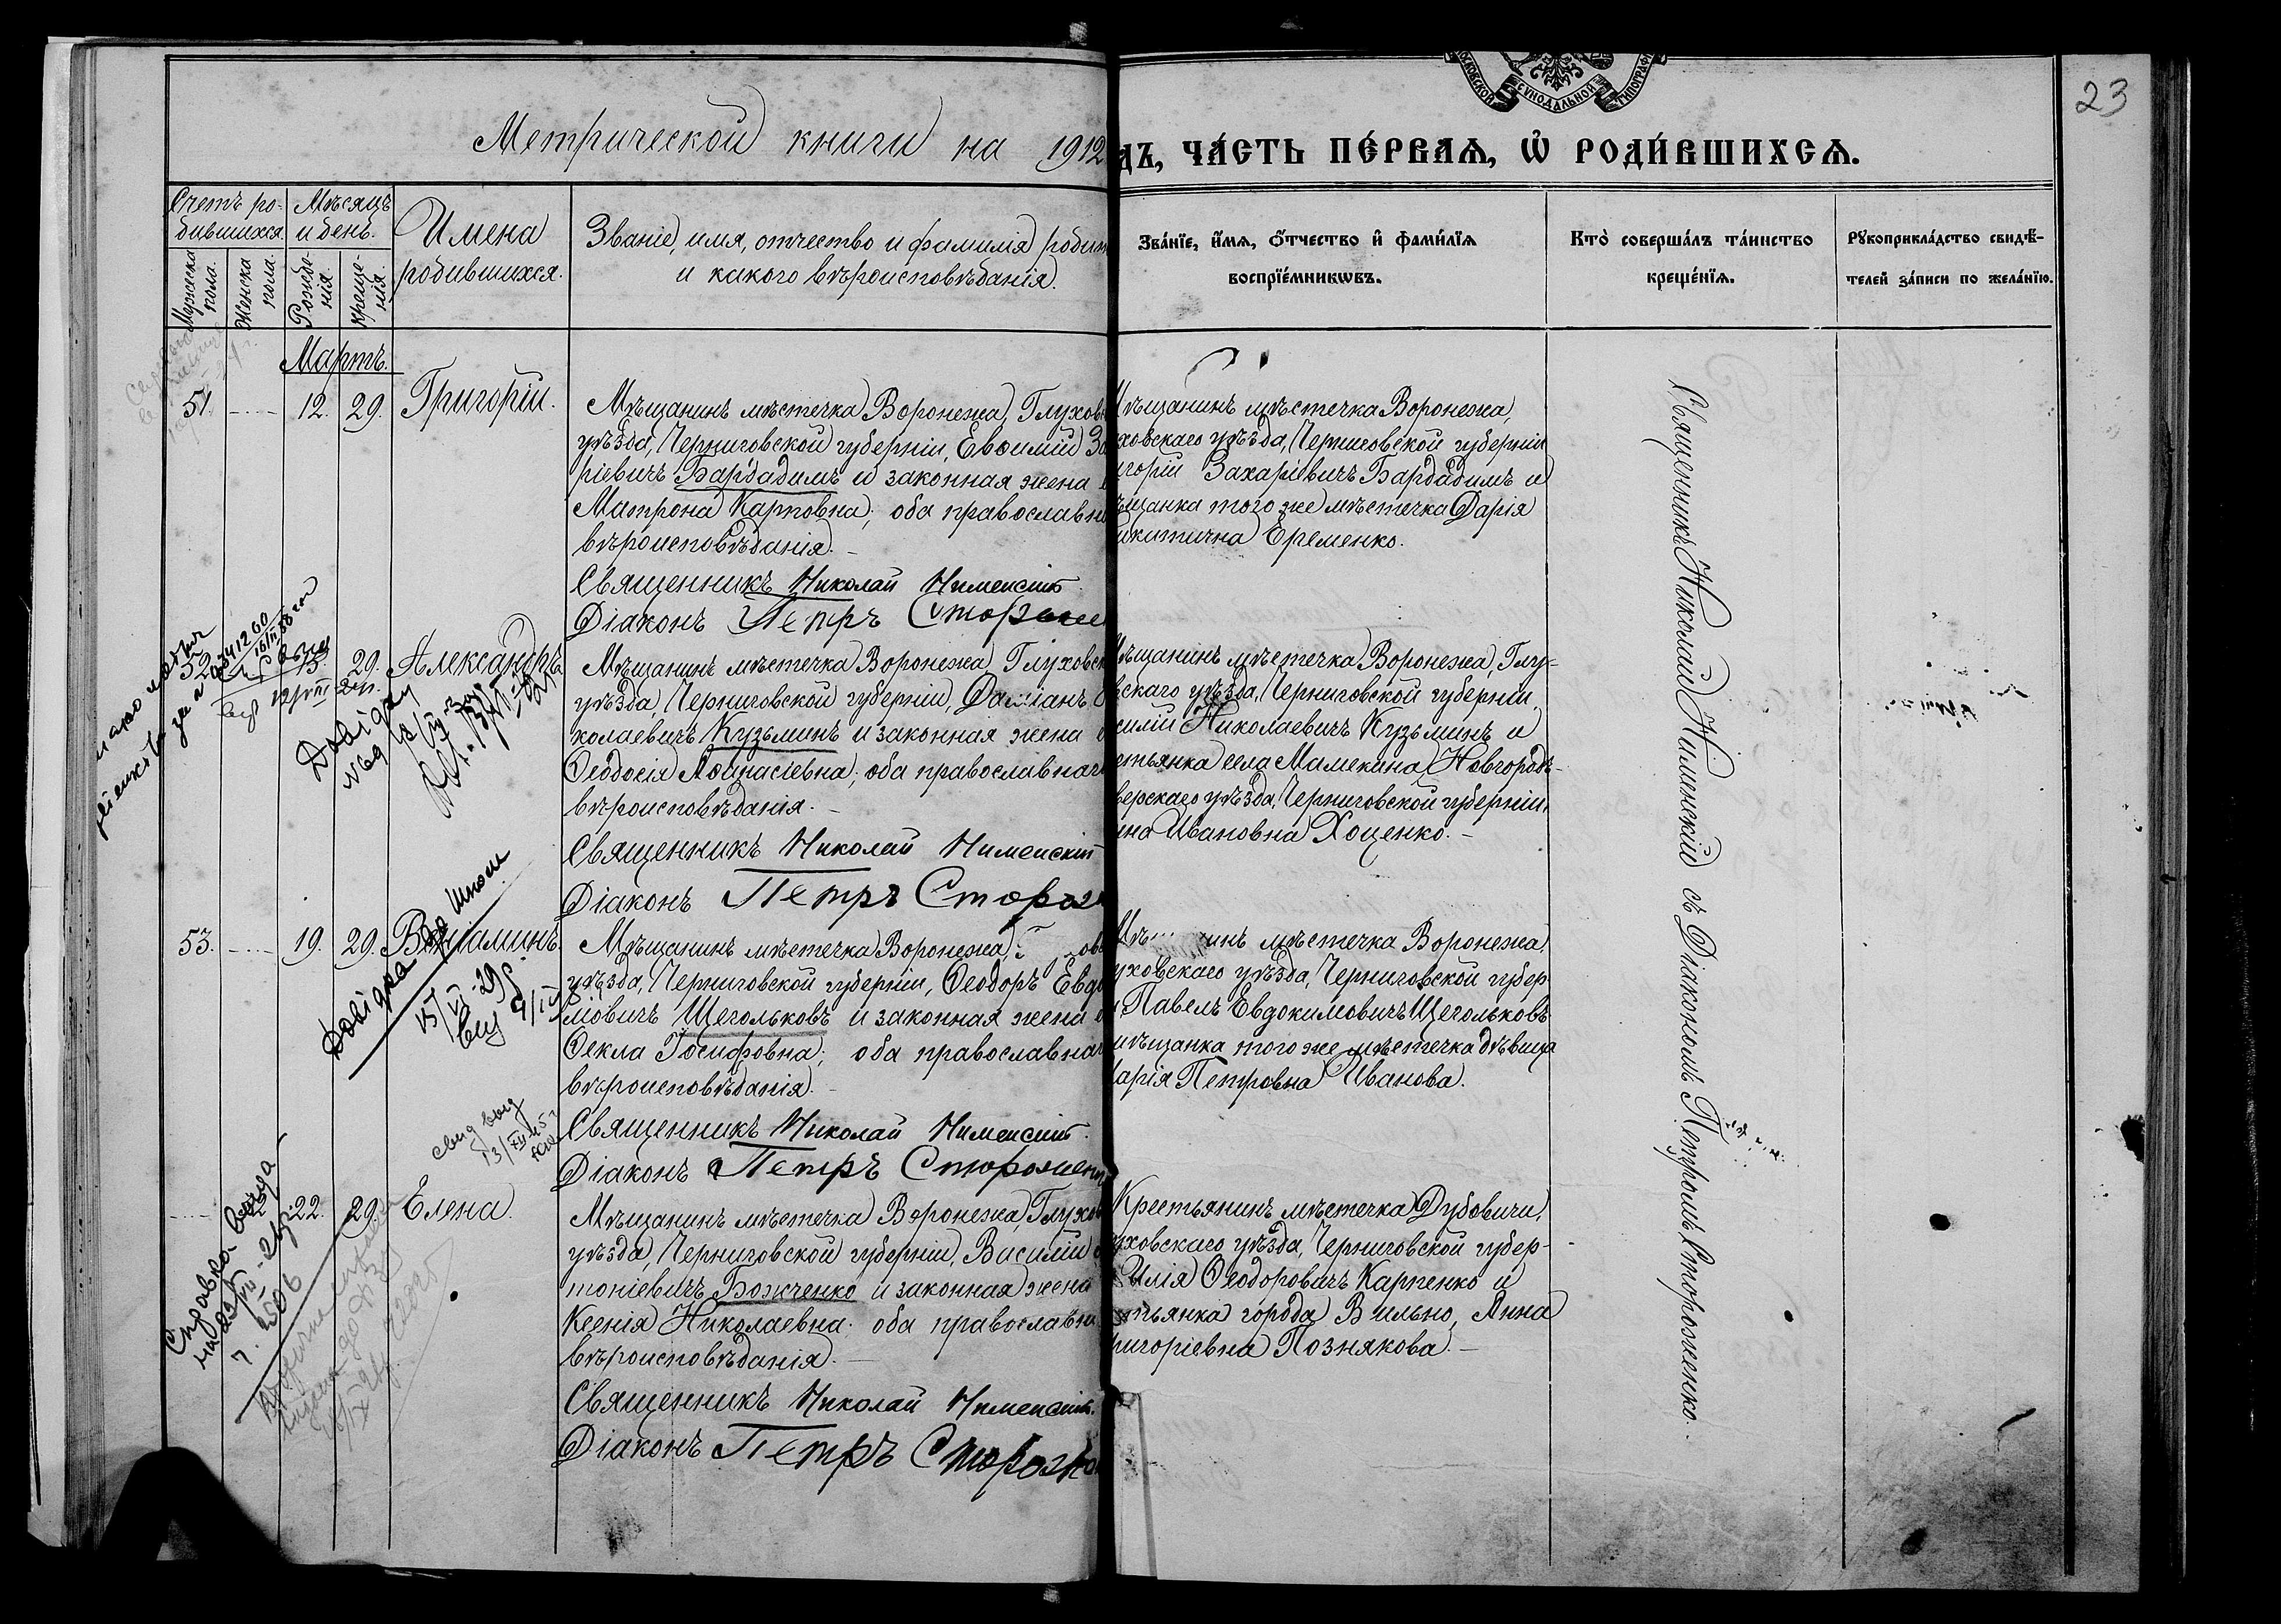 23
Метрической книги на 1912
дъ, ча́сть пе́рваѧ, ѡ҆ роди́вшихсѧ.
Счетъ ро-
дившихся.
Мужеска
пола.
Женска
пола.
Мѣсяцъ
и день.
Рожде-
нія.
Креще-
нія.
Имена
родившихся.
Званіе, имя, отчество и фамилія родит
и какого вѣроисповѣданія.
Зва́нїе, и҆́мѧ, ѻ҆́тчество и҆ фами́лїѧ
воспрїе́мникѡвъ.
Кто̀ соверша́лъ та́инство
креще́нїѧ.
Рꙋкоприкла́дство свидѣ́-
телей за́писи по жела́нїю.
Мартъ.
51. 12. 29. Григорій.
Мѣщанинъ мѣстечка Воронежа, Глухов
уѣзда, Черниговской губерніи, Евѳимій За
ріевичъ Бардадимъ и законная жена
Матрона Карповна; оба православн
вѣроисповѣданія.
Священникъ Николай Нименскій
Діаконъ Петръ Стороже
Мѣщанинъ мѣстечка Воронежа,
ховскаго уѣзда, Черниговской губерніи
игорій Захаріевичъ Бардадимъ и
ѣщанка того же мѣстечка Дарія
икитична Еременко.
52. 15. 29. Александръ
Мѣщанинъ мѣстечка Воронежа, Глуховск
уѣзда, Черниговской губерніи, Даміанъ
колаевичъ Кузьминъ и законная жена
Ѳеодосія Аѳанасіевна; оба православнаг
вѣроисповѣданія.
Священникъ Николай Нименскій
Діаконъ Петръ Сторож
Мѣщанинъ мѣстечка Воронежа, Глу-
вскаго уѣзда, Черниговской губерніи,
силій Николаевичъ Кузьминъ и
стьянка села Мамекина, Новгородъ-
верскаго уѣзда, Черниговской губерніи,
нна Ивановна Хоценко.
53. 19. 29. Веніаминъ.
Мѣщанинъ мѣстечка Воронежа, Г овс
уѣзда, Черниговской губерніи, Ѳеодоръ Евдо
мовичъ Щегольковъ и законная жена
Ѳекла Іосифовна; оба православнаг
вѣроисповѣданія.
Священникъ Николай Нименскій
Діаконъ Петръ Стороженк
Мѣ инъ мѣстечка Воронежа,
уховскаго уѣзда, Черниговской губер
Павелъ Евдокимовичъ Щегольковъ
мѣщанка того же мѣстечка дѣвица
Марія Петровна Иванова.
22. 29. Елена.
Мѣщанинъ мѣстечка Воронежа, Глухов
уѣзда, Черниговской губерніи, Василій
тоніевичъ Божченко и законная жена
Ксенія Николаевна; оба православна
вѣроисповѣданія.
Священникъ Николай Нименскій.
Діаконъ Петръ Сторожен
Крестьянинъ мѣстечка Дубовичи,
уховскаго уѣзда, Черниговской губер-
Илія Ѳеодоровичъ Карпенко и
стьянка города Вильно, Анна
ригоріевна Познякова.
Священникъ Николай Нименскій съ Діакономъ Петромъ Стороженко.
Справка выда